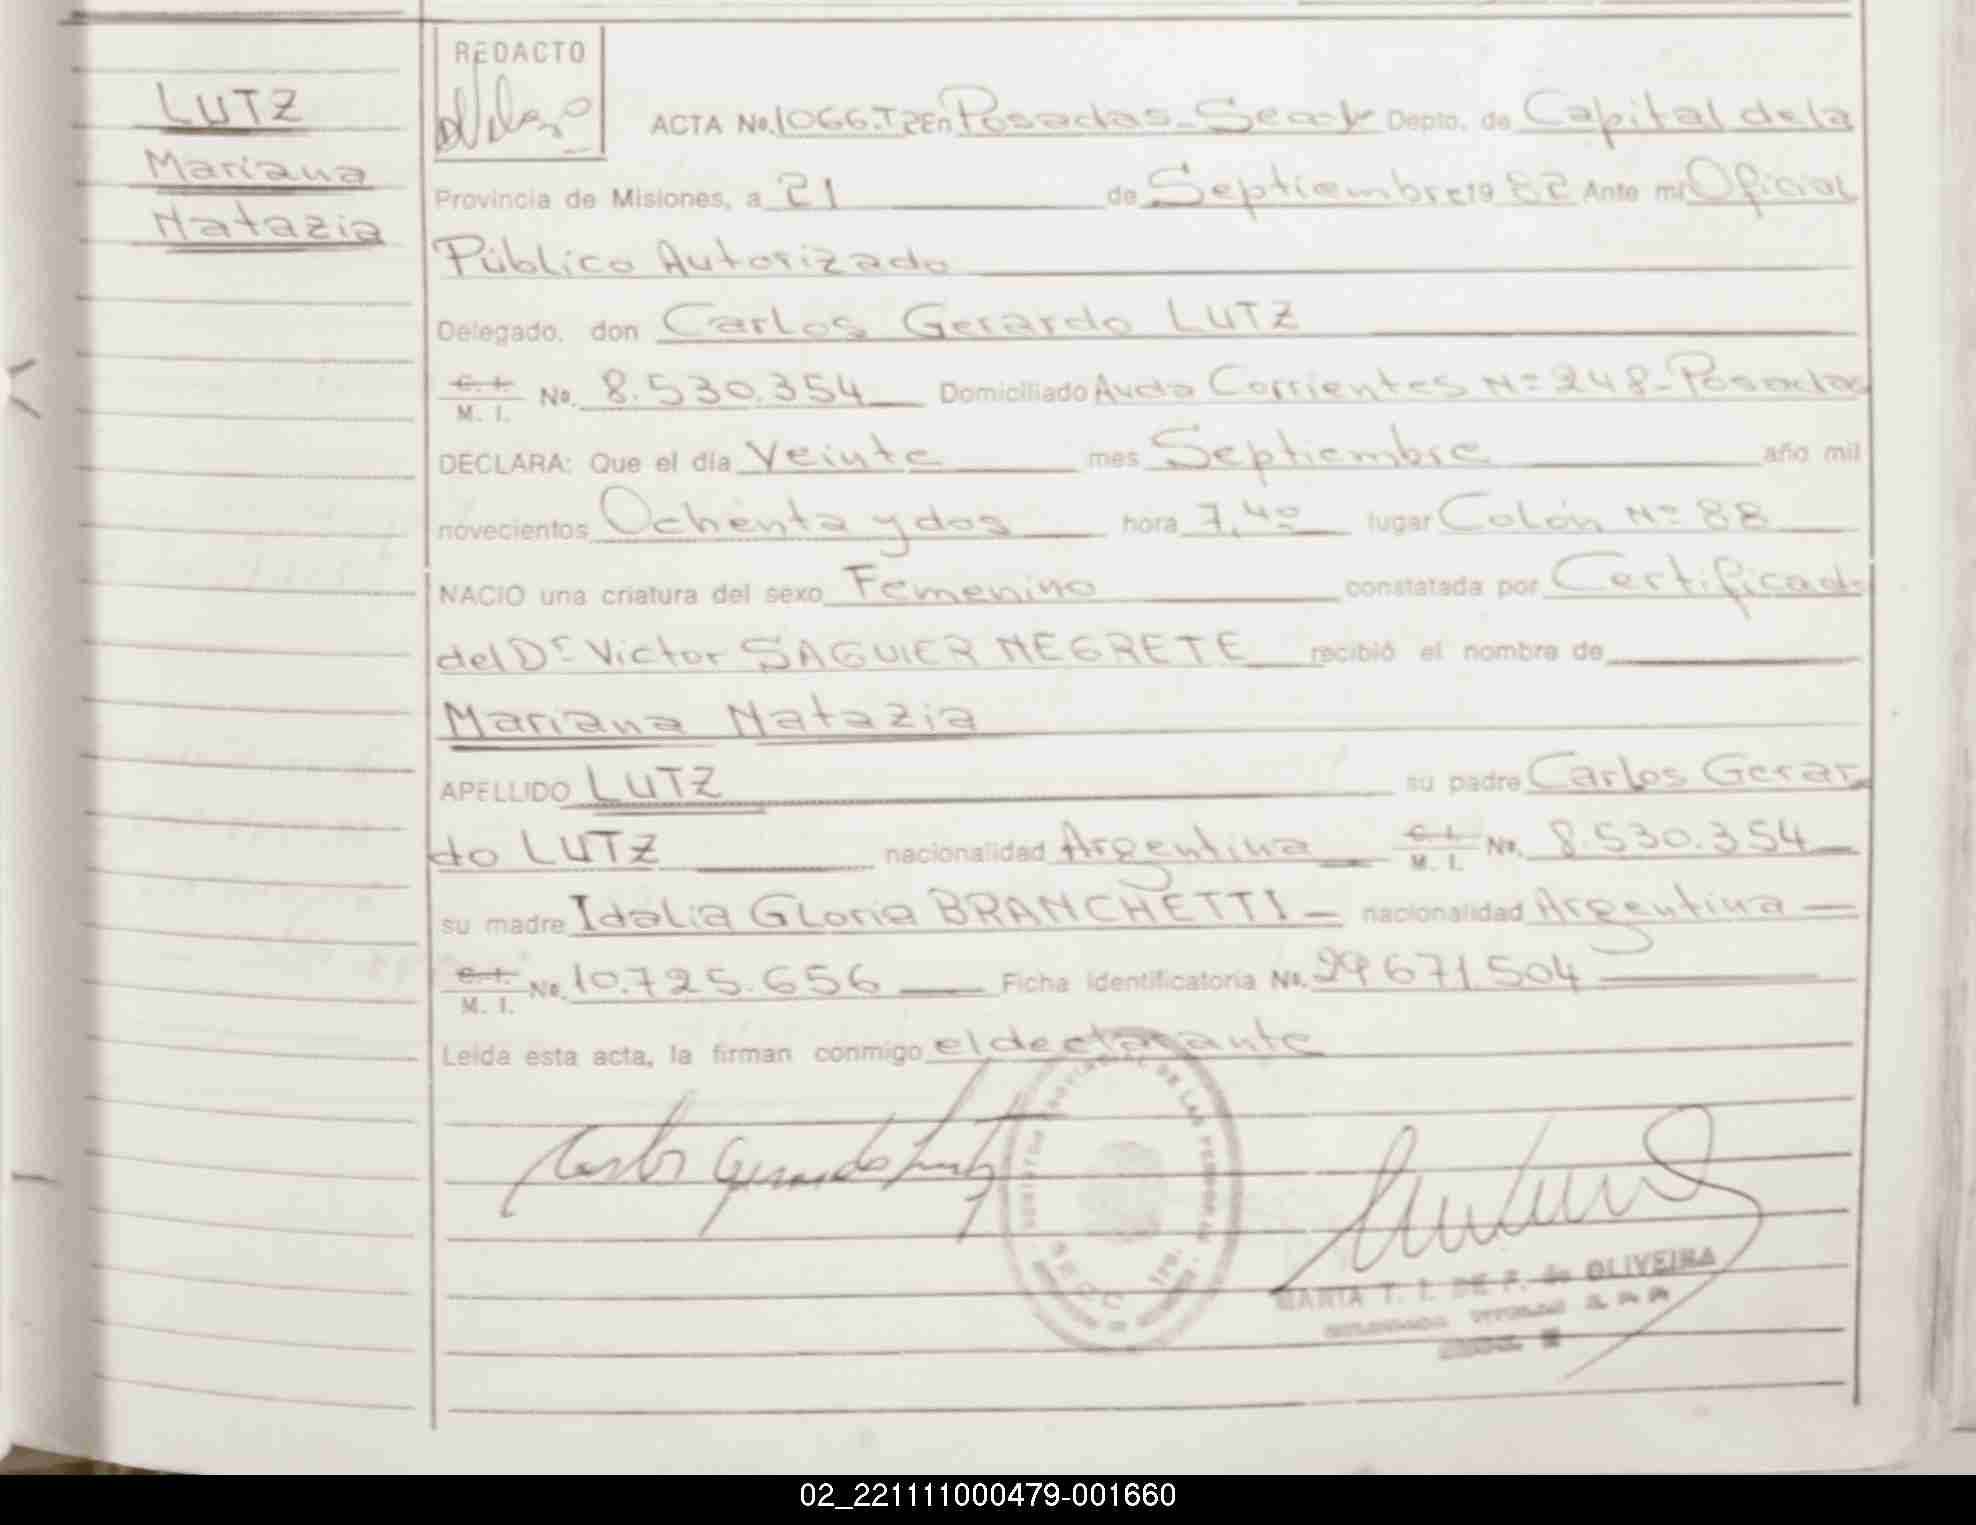 REDACTO
LUTZ
Mariana
Natazia
ACTA No. 1066.T2 En Posadas - Sec Depto. de Capital de la
Provincia de Misiones, a 21 de Septiembre 19 82 Ante mi Oficial
Público Autorizado
Delegado, don Carlos Gerardo LUTZ
C. I.
M. I. No. 8.530.354 Domiciliado Avda Corrientes Nº 248 - Posadas
DECLARA: Que el día Veinte mes Septiembre año mil
novecientos Ochenta y dos hora 7,40 lugar Colón Nº 88
NACIO una criatura del sexo Femenino constatada por Certificado
del Dr Victor SAGUIER NEGRETE recibió el nombre de
Mariana Natazia
APELLIDO LUTZ su padre Carlos Gerar
do LUTZ nacionalidad Argentina C. I. M. I. No. 8.530.354
su madre Idalia Gloria BRANCHETTI nacionalidad Argentina
C. I.
M. I. No. 10.725.656 Ficha identificatoria No. 29.671.504
Leída esta acta, la firman conmigo el declarante
Carlos Gerardo Lutz
PROVINCIAL DE LAS PERSONAS
MARIA T. I. DE F. de OLIVEIRA
02_221111000479-001660